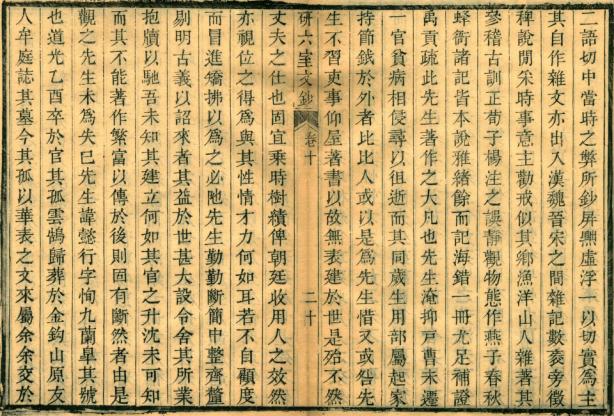 二語切中當時之弊所鈔屏黜虛浮一以切實為主
其自作雜文亦出入漢魏晉宋之間雜記數卷旁徵
稗說閒采時事意主勸戒似其鄉漁洋山人雜著其
參稽古訓正荀子楊注之誤靜觀物態作燕子春秋
蜂衙諸記皆本說雅緒餘而記海錯一冊尤足補證
禹貢疏此先生著作之大凡也先生淹抑戶曹未遷
一官貧病相侵尋以徂逝而其同歲生用部屬起家
持節鉞於外者比比人或以是為先生惜又或咎先
生不習吏事仰屋著書以故無表建於世是殆不然
研六室文鈔 卷十 二十
丈夫之仕也固宜乘時樹績俾朝廷收用人之效然
亦視位之得為與其性情才力何如耳若不自顧度
而冒進矯拂以為之必阤先生勤勤斷簡中整齊釐
剔明古義以詔來者其益於世甚大設令舍其所業
抱牘以馳吾未知其建立何如其官之升沈未可知
而其不能著作繁富以傳於後則固有斷然者由是
觀之先生未為失已先生諱懿行字恂九蘭皋其號
也道光乙酉卒於官其孤雲鵠歸葬於金鉤山原友
人牟庭誌其墓今其孤以華表之文來屬余余交於